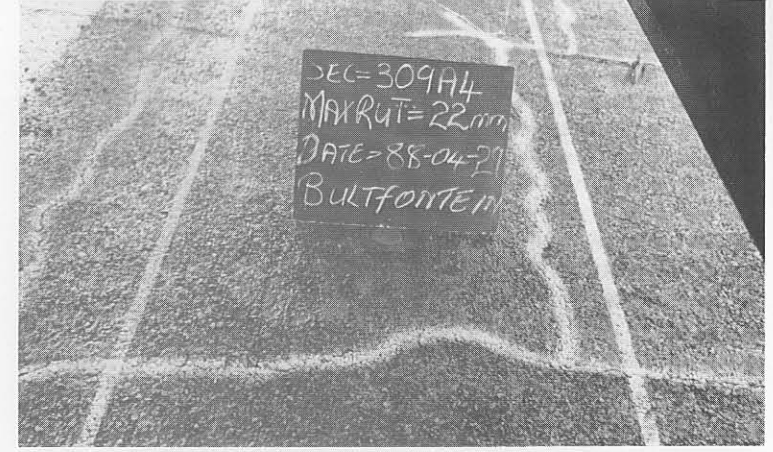 SEC=309A4
MAXRUT=22mm
DATE=88-04-29
BULTFONTEIN